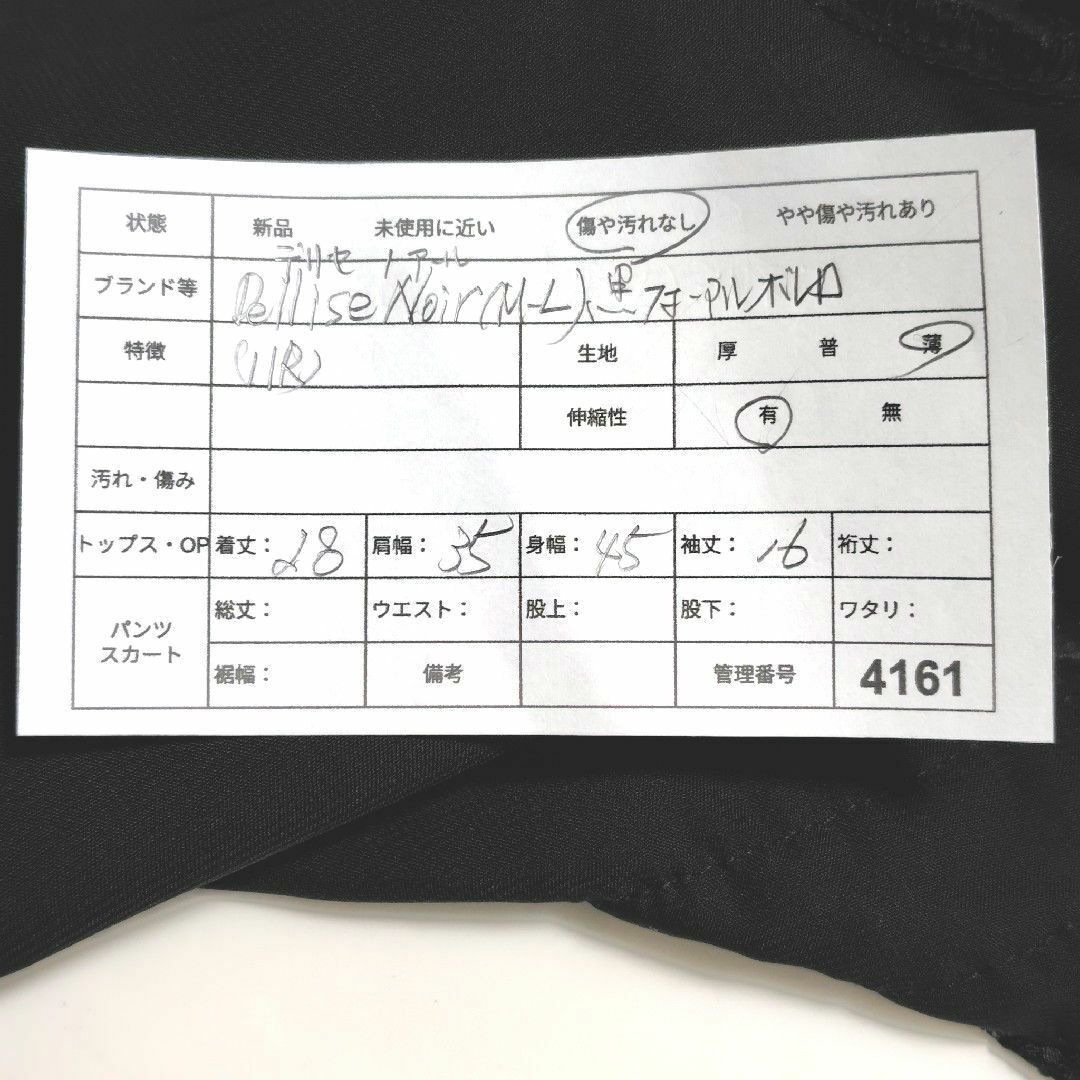 状態 新品 未使用に近い 傷や汚れなし やや傷や汚れあり
デリセ ノアール
ブランド等 Dellise Noir(M-L)、黒フォーマルボレロ
特徴 (11R) 生地 厚 普 薄
伸縮性 有 無
汚れ・傷み
トップス・OP 着丈: 28 肩幅: 35 身幅: 45 袖丈: 16 裄丈:
パンツ 総丈: ウエスト: 股上: 股下: ワタリ:
スカート
裾幅: 備考 管理番号 4161